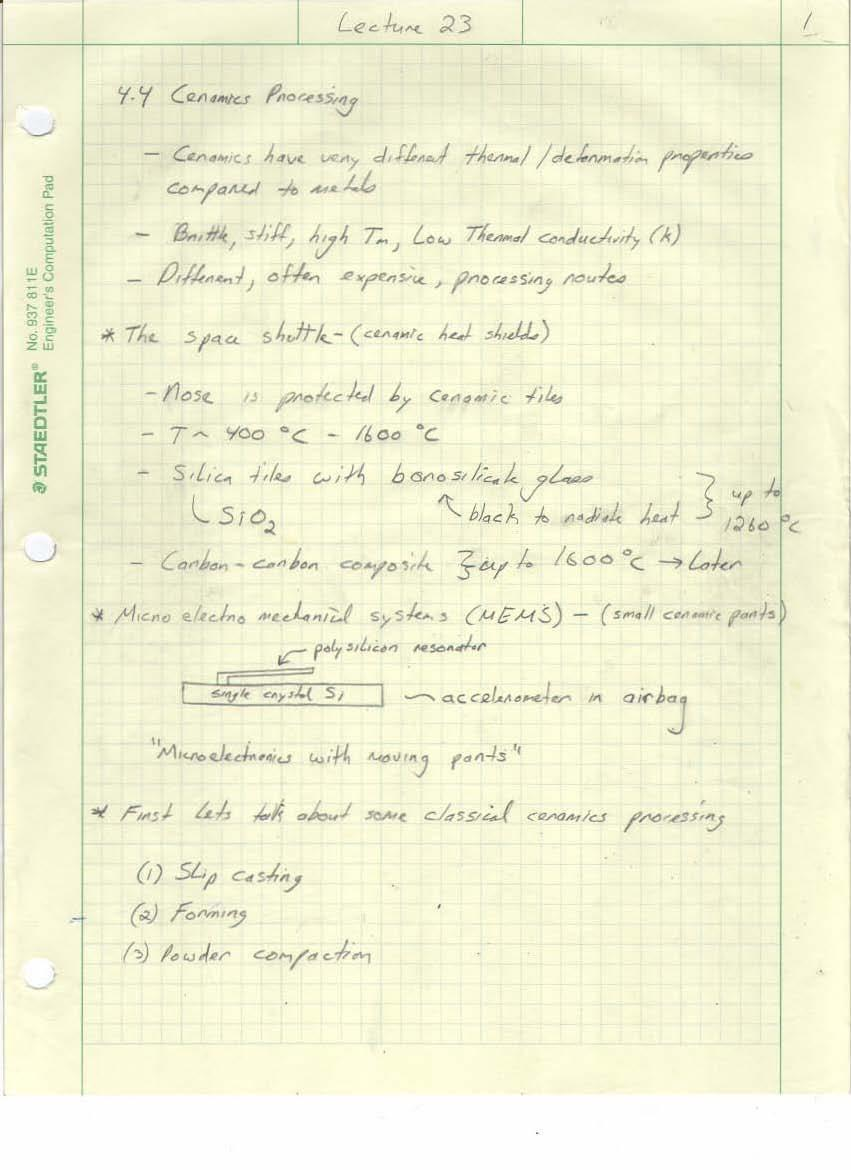 Lecture 23
1
4.4 Ceramics Processing
- Ceramics have very different thermal / deformation properties
compared to metals
- Brittle, stiff, high Tm, Low Thermal conductivity (k)
- Different, often expensive, processing routes
* The space shuttle - (ceramic heat shields)
- Nose is protected by ceramic tiles
- T ~ 400 °C - 1600 °C
- Silica tiles with borosilicate glass
SiO₂
black to radiate heat
} up to
1260 °C
- Carbon-carbon composite } up to 1600 °C → Later
* Micro electro mechanical systems (MEMS) - (small ceramic parts)
polysilicon resonator
single crystal Si
~ accelerometer in airbag
"Microelectronics with moving parts"
* First Lets talk about some classical ceramics processing
(1) Slip casting
(2) Forming
(3) Powder compaction
STAEDTLER® No. 937 811E
Engineer's Computation Pad